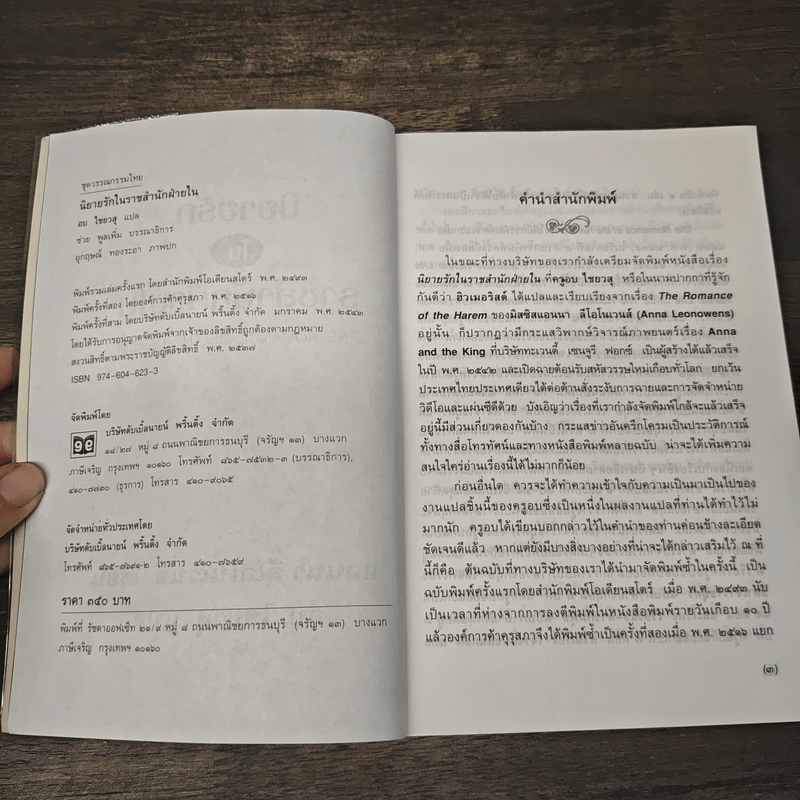 ชุดวรรณกรรมไทย
นิยายรักในราชสำนักฝ่ายใน
อบ ไชยวสุ แปล
ช่วย พูลเพิ่ม บรรณาธิการ
อุกฤษณ์ ทองระอา ภาพปก
พิมพ์รวมเล่มครั้งแรก โดยสำนักพิมพ์โอเดียนสโตร์ พ.ศ. ๒๔๙๓
พิมพ์ครั้งที่สอง โดยองค์การค้าคุรุสภา พ.ศ. ๒๕๑๖
พิมพ์ครั้งที่สาม โดยบริษัทดับเบิ้ลนายน์ พริ้นติ้ง จำกัด มกราคม พ.ศ. ๒๕๔๓
โดยได้รับการอนุญาตจัดพิมพ์จากเจ้าของลิขสิทธิ์ถูกต้องตามกฎหมาย
สงวนสิทธิ์ตามพระราชบัญญัติลิขสิทธิ์ พ.ศ. ๒๕๓๗
ISBN 974-604-623-3
จัดพิมพ์โดย
บริษัทดับเบิ้ลนายน์ พริ้นติ้ง จำกัด
๑๘/๒๗ หมู่ ๘ ถนนพาณิชยการธนบุรี (จรัญฯ ๑๓) บางแวก
ภาษีเจริญ กรุงเทพฯ ๑๐๑๖๐ โทรศัพท์ ๘๖๕-๗๕๓๒-๓ (บรรณาธิการ),
๔๑๐-๗๗๓๐ (ธุรการ) โทรสาร ๔๑๐-๙๐๖๕
จัดจำหน่ายทั่วประเทศโดย
บริษัทดับเบิ้ลนายน์ พริ้นติ้ง จำกัด
โทรศัพท์ ๘๖๕-๗๖๙๑-๒ โทรสาร ๔๑๐-๗๖๕๙
ราคา ๓๕๐ บาท
พิมพ์ที่ รัชดาออฟเซ็ท ๒๑/๙ หมู่ ๘ ถนนพาณิชยการธนบุรี (จรัญฯ ๑๓) บางแวก
ภาษีเจริญ กรุงเทพฯ ๑๐๑๖๐
คำนำสำนักพิมพ์
ในขณะที่ทางบริษัทของเรากำลังเตรียมจัดพิมพ์หนังสือเรื่อง
นิยายรักในราชสำนักฝ่ายใน ที่ครูอบ ไชยวสุ หรือในนามปากกาที่รู้จัก
กันดีว่า ฮิวเมอริสต์ ได้แปลและเรียบเรียงจากเรื่อง The Romance
of the Harem ของมิสซิสแอนนา ลีโอโนเวนส์ (Anna Leonowens)
อยู่นั้น ก็ปรากฏว่ามีกระแสวิพากษ์วิจารณ์ภาพยนตร์เรื่อง Anna
and the King ที่บริษัททะเวนตี้ เซนจุรี ฟอกซ์ เป็นผู้สร้างได้แล้วเสร็จ
ในปี พ.ศ. ๒๕๔๒ และเปิดฉายต้อนรับสหัสวรรษใหม่เกือบทั่วโลก ยกเว้น
ประเทศไทยประเทศเดียวได้ต่อต้านสั่งระงับการฉายและการจัดจำหน่าย
วิดีโอและแผ่นซีดีด้วย บังเอิญว่าเรื่องที่เรากำลังจัดพิมพ์ใกล้จะแล้วเสร็จ
อยู่นี้มีส่วนเกี่ยวดองกันบ้าง กระแสข่าวอันครึกโครมเป็นประวัติการณ์
ทั้งทางสื่อโทรทัศน์และทางหนังสือพิมพ์หลายฉบับ น่าจะได้เพิ่มความ
สนใจใคร่อ่านเรื่องนี้ได้ไม่มากก็น้อย
ก่อนอื่นใด ควรจะได้ทำความเข้าใจกับความเป็นมาเป็นไปของ
งานแปลชิ้นนี้ของครูอบซึ่งเป็นหนึ่งในผลงานแปลที่ท่านได้ทำไว้ไม่
มากนัก ครูอบได้เขียนบอกกล่าวไว้ในคำนำของท่านค่อนข้างละเอียด
ชัดเจนดีแล้ว หากแต่ยังมีบางสิ่งบางอย่างที่น่าจะได้กล่าวเสริมไว้ ณ ที่
นี้ก็คือ ต้นฉบับที่ทางบริษัทของเราได้นำมาจัดพิมพ์ซ้ำในครั้งนี้ เป็น
ฉบับพิมพ์ครั้งแรกโดยสำนักพิมพ์โอเดียนสโตร์ เมื่อ พ.ศ. ๒๔๙๓ นับ
เป็นเวลาที่ห่างจากการลงตีพิมพ์ในหนังสือพิมพ์รายวันเกือบ ๑๐ ปี
แล้วองค์การค้าคุรุสภาจึงได้พิมพ์ซ้ำเป็นครั้งที่สองเมื่อ พ.ศ. ๒๕๑๖ แยก
(๓)